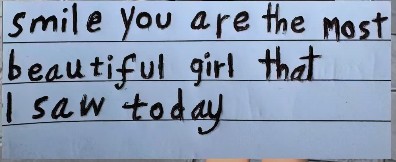 smile you are the most
beautiful girl that
I saw today